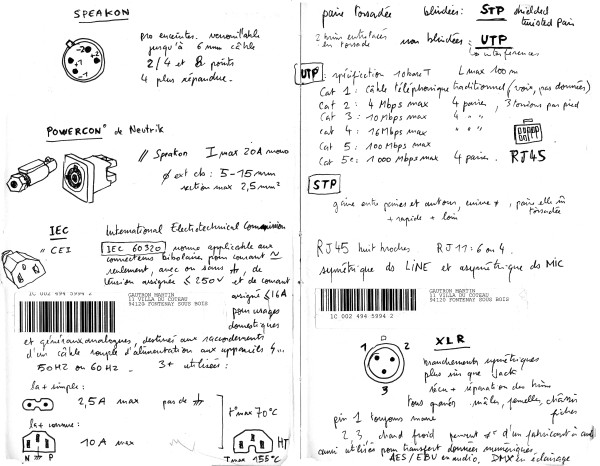 SPEAKON
pro enceintes. verrouillable
jusqu'à 6 mm câble
2/4 et 8 points
4 plus répandue.
2-
2+
1-
1+
POWERCON® de Neutrik
// Speakon I max 20A mono
ø ext cb : 5-15mm
section max 2,5 mm²
IEC International Electrotechnical Commission
" CEI
IEC 60320 norme applicable aux
connecteurs bipolaires pour courant ~
seulement, avec ou sans ⏚, de
tension assignée ≤ 250V et de courant
assigné ≤ 16A
pour usages
domestiques
1C 002 494 5994 2
GAUTRON MARTIN
11 VILLA DU COTEAU
94120 FONTENAY SOUS BOIS
et généraux analogues, destinés aux raccordements
d'un câble souple d'alimentation aux appareils
50Hz ou 60Hz. 3+ utilisées :
la + simple :
2,5A max pas de ⏚
la + connue :
10A max
N P
t° max 70°C
HT
Tmax 155°C
paire torsadée blindées : STP shielded
twisted pair
2 brins entrelacés
en torsade
non blindées : UTP
interférences
UTP : spécification 10baseT L max 100m
Cat 1 : Câble téléphonique traditionnel (voix, pas données)
Cat 2 : 4 Mbps max 4 paires, 3 torsions par pied
Cat 3 : 10 Mbps max 4 " "
Cat 4 : 16 Mbps max " " "
Cat 5 : 100 Mbps max
Cat 5e : 1000 Mbps max 4 paires. RJ45
STP
gaine entre paires et autour, cuivre +, paire elle m̂
torsadée
+ rapide + loin
RJ45 huit broches RJ11 : 6 ou 4.
symétrique do LiNE et asymétrique do MIC
1C 002 494 5994 2
GAUTRON MARTIN
11 VILLA DU COTEAU
94120 FONTENAY SOUS BOIS
XLR
1 2
3
branchements symétriques
plus sûr que jack
sécu + réparation des brins
tous genres mâles, femelles, châssis
fiches
pin 1 toujours masse
2, 3 chaud froid peuvent ≠ d'un fabricant à
aussi utilisées pour transfert données numériques
AES/EBU en audio, DMX en éclairage